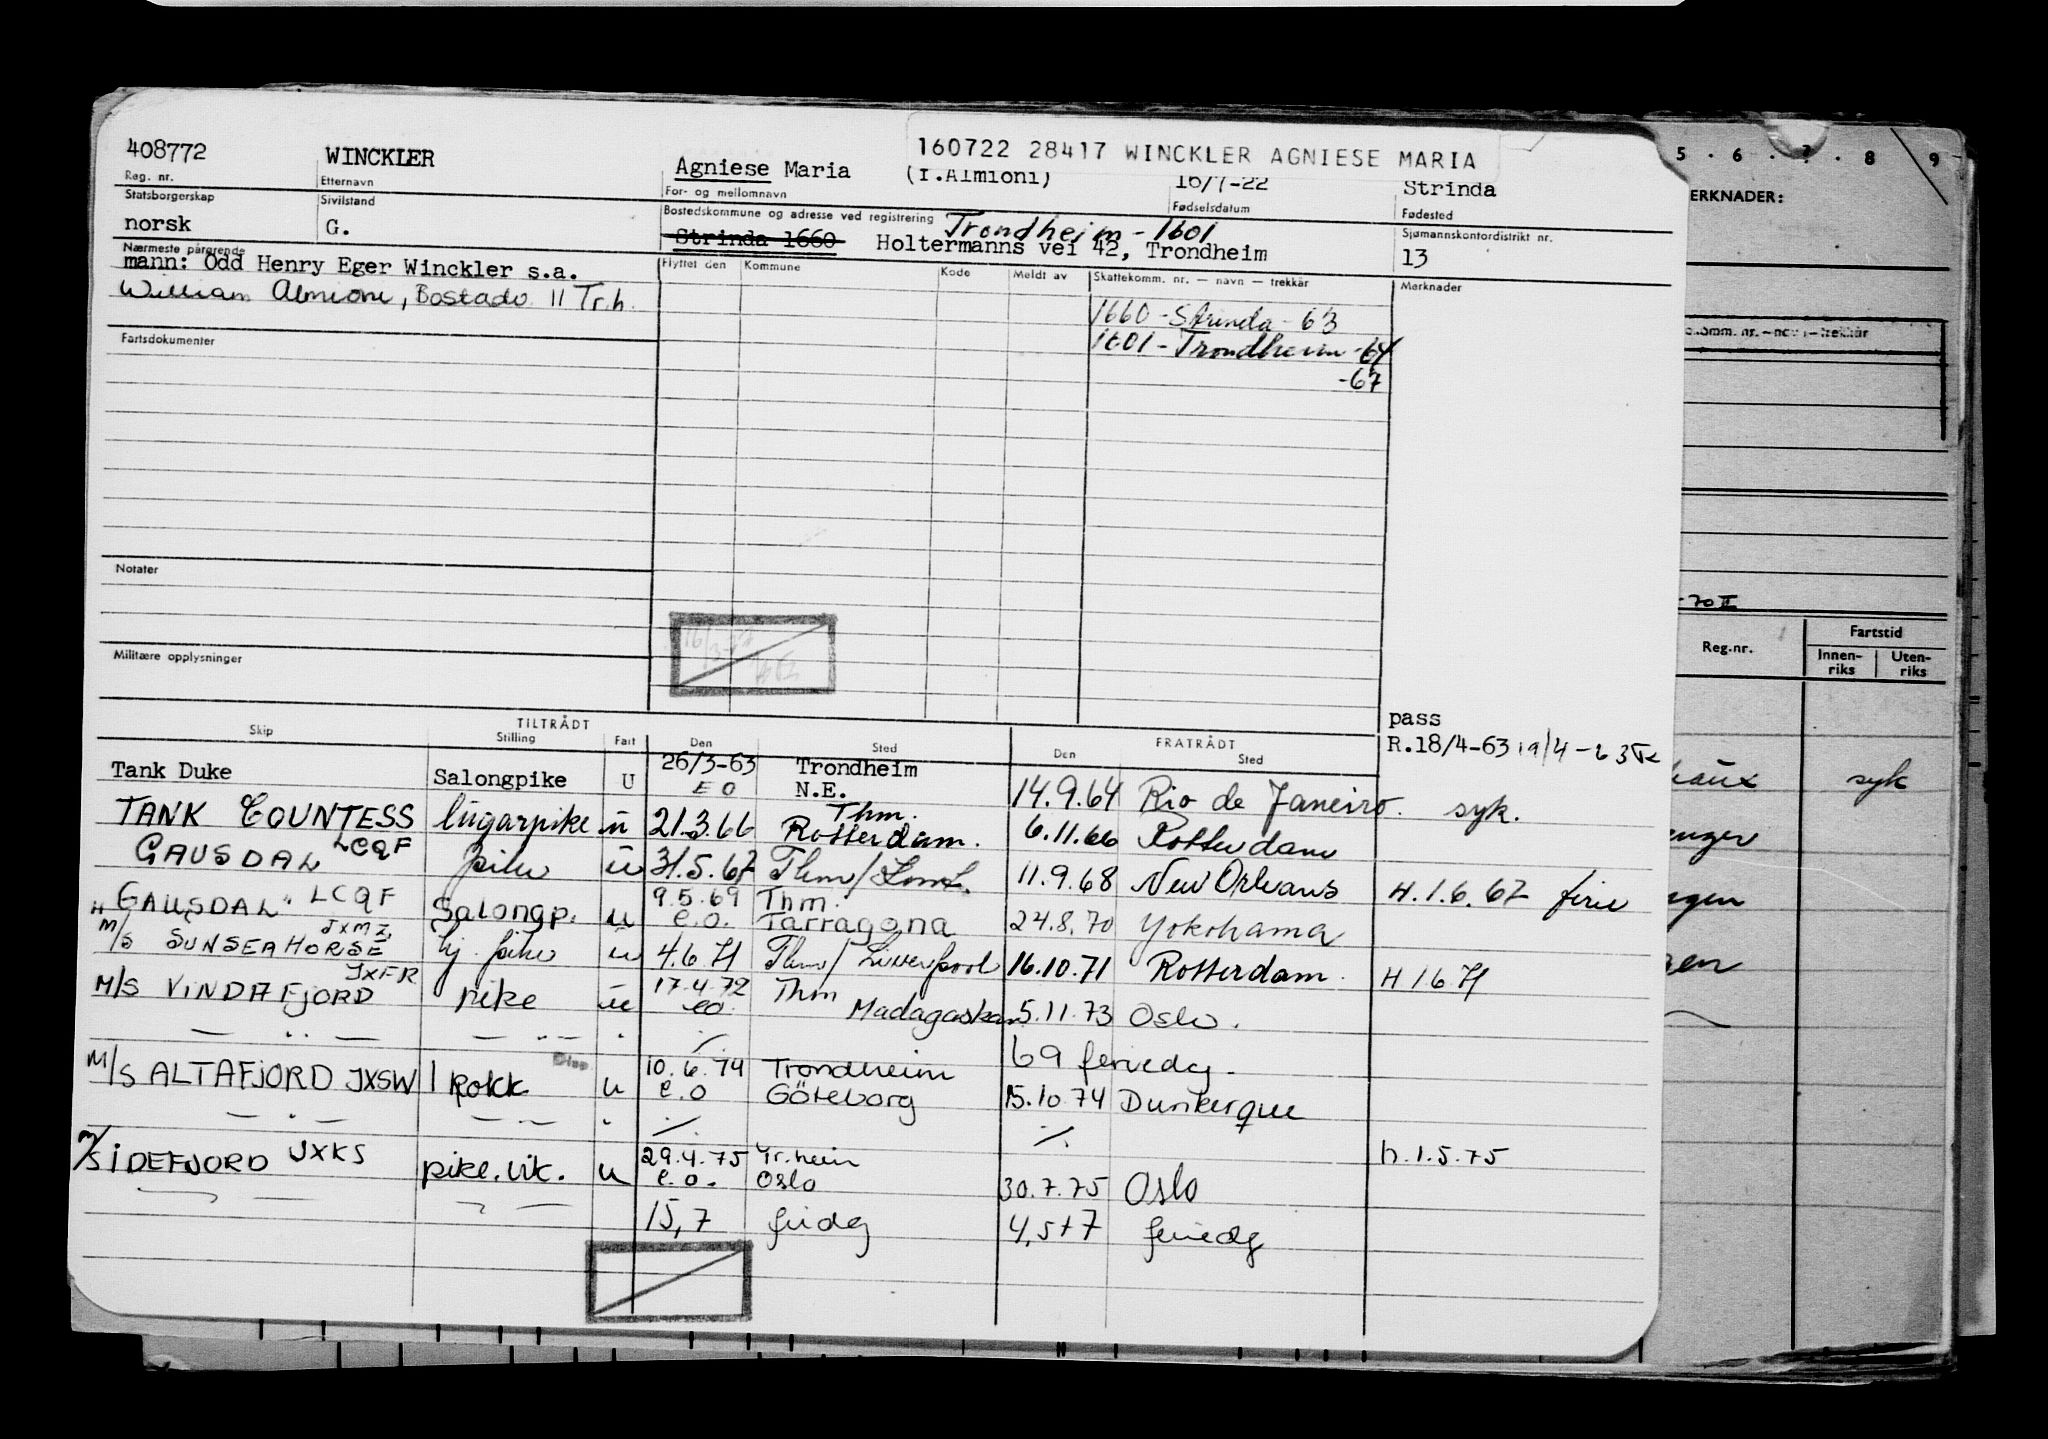 160722 28417 WINCKLER AGNIESE MARIA
408772 WINCKLER Agniese Maria (f.Almioni) 16/7-22 Strinda
Reg. nr. Etternavn For- og mellomnavn Fødselsdatum Fødested
Statsborgerskap Sivilstand Bostedskommune og adresse ved registrering Trondheim - 1601 Sjømannskontordistrikt nr.
norsk G. Strinda 1660 Holtermanns vei 42, Trondheim 13
Nærmeste pårørende Flyttet den Kommune Kode Meldt av Skattekomm. nr. — navn — trekkår Merknader
mann: Odd Henry Eger Winckler s.a.
William Almioni, Bostadv. 11 Tr.h.
1660 - Strinda - 63
1601 - Trondheim - 64
-67
Fartsdokumenter
Notater
Militære opplysninger
Skip TILTRÅDT Stilling Fart Den Sted FRATRÅDT Den Sted
pass
R.18/4-63 19/4-63
Tank Duke Salongpike U 26/3-63 Trondheim
EO N.E. 14.9.64 Rio de Janeiro. syk.
TANK COUNTESS lugarpike u 21.3.66 Thm.
Rotterdam. 6.11.66 Rotterdam
GAUSDAL LCQF pike u 31.5.67 Thm/ 11.9.68 New Orleans H.1.6.67 ferie
GAUSDAL LCQF Salongp. u 9.5.69 Thm.
e.o. Tarragona 24.8.70 Yokohama
M/S SUNSEAHORSE JXMZ hj. pike u 4.6.71 Thm/Liverpool 16.10.71 Rotterdam. H 1 6 71
M/S VINDAFJORD JXFR pike u 17.4.72 Thm
eo. Madagaskar 5.11.73 Oslo.
— .. — — .. — " ./. 69 feriedg.
M/S ALTAFJORD JXSW 1 kokk Disp u 10.6.74 Trondheim
e.o Göteborg 15.10.74 Dunkerque
— . — — . — " ./. ./.
M/S IDEFJORD JXKS pike.vik. u 29.4.75 Tr.heim h.1.5.75
e.o. Oslo 30.7.75 Oslo
15,7 fridg 4,5+7 feriedg
5 . 6 . 7 . 8 9
ERKNADER:
komm. nr. — navn — trekkår
-70 II
Reg.nr. Fartstid
Innen-riks Uten-riks
syk